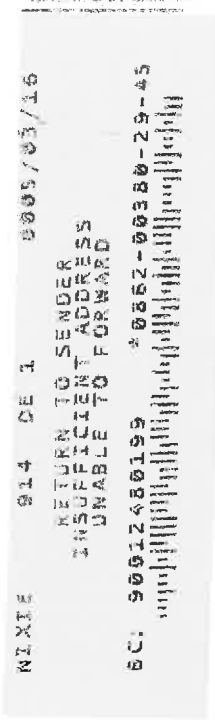 NIXIE 914 DE 1 0005/03/16
RETURN TO SENDER
INSUFFICIENT ADDRESS
UNABLE TO FORWARD
BC: 90012480199 *0862-00380-29-45